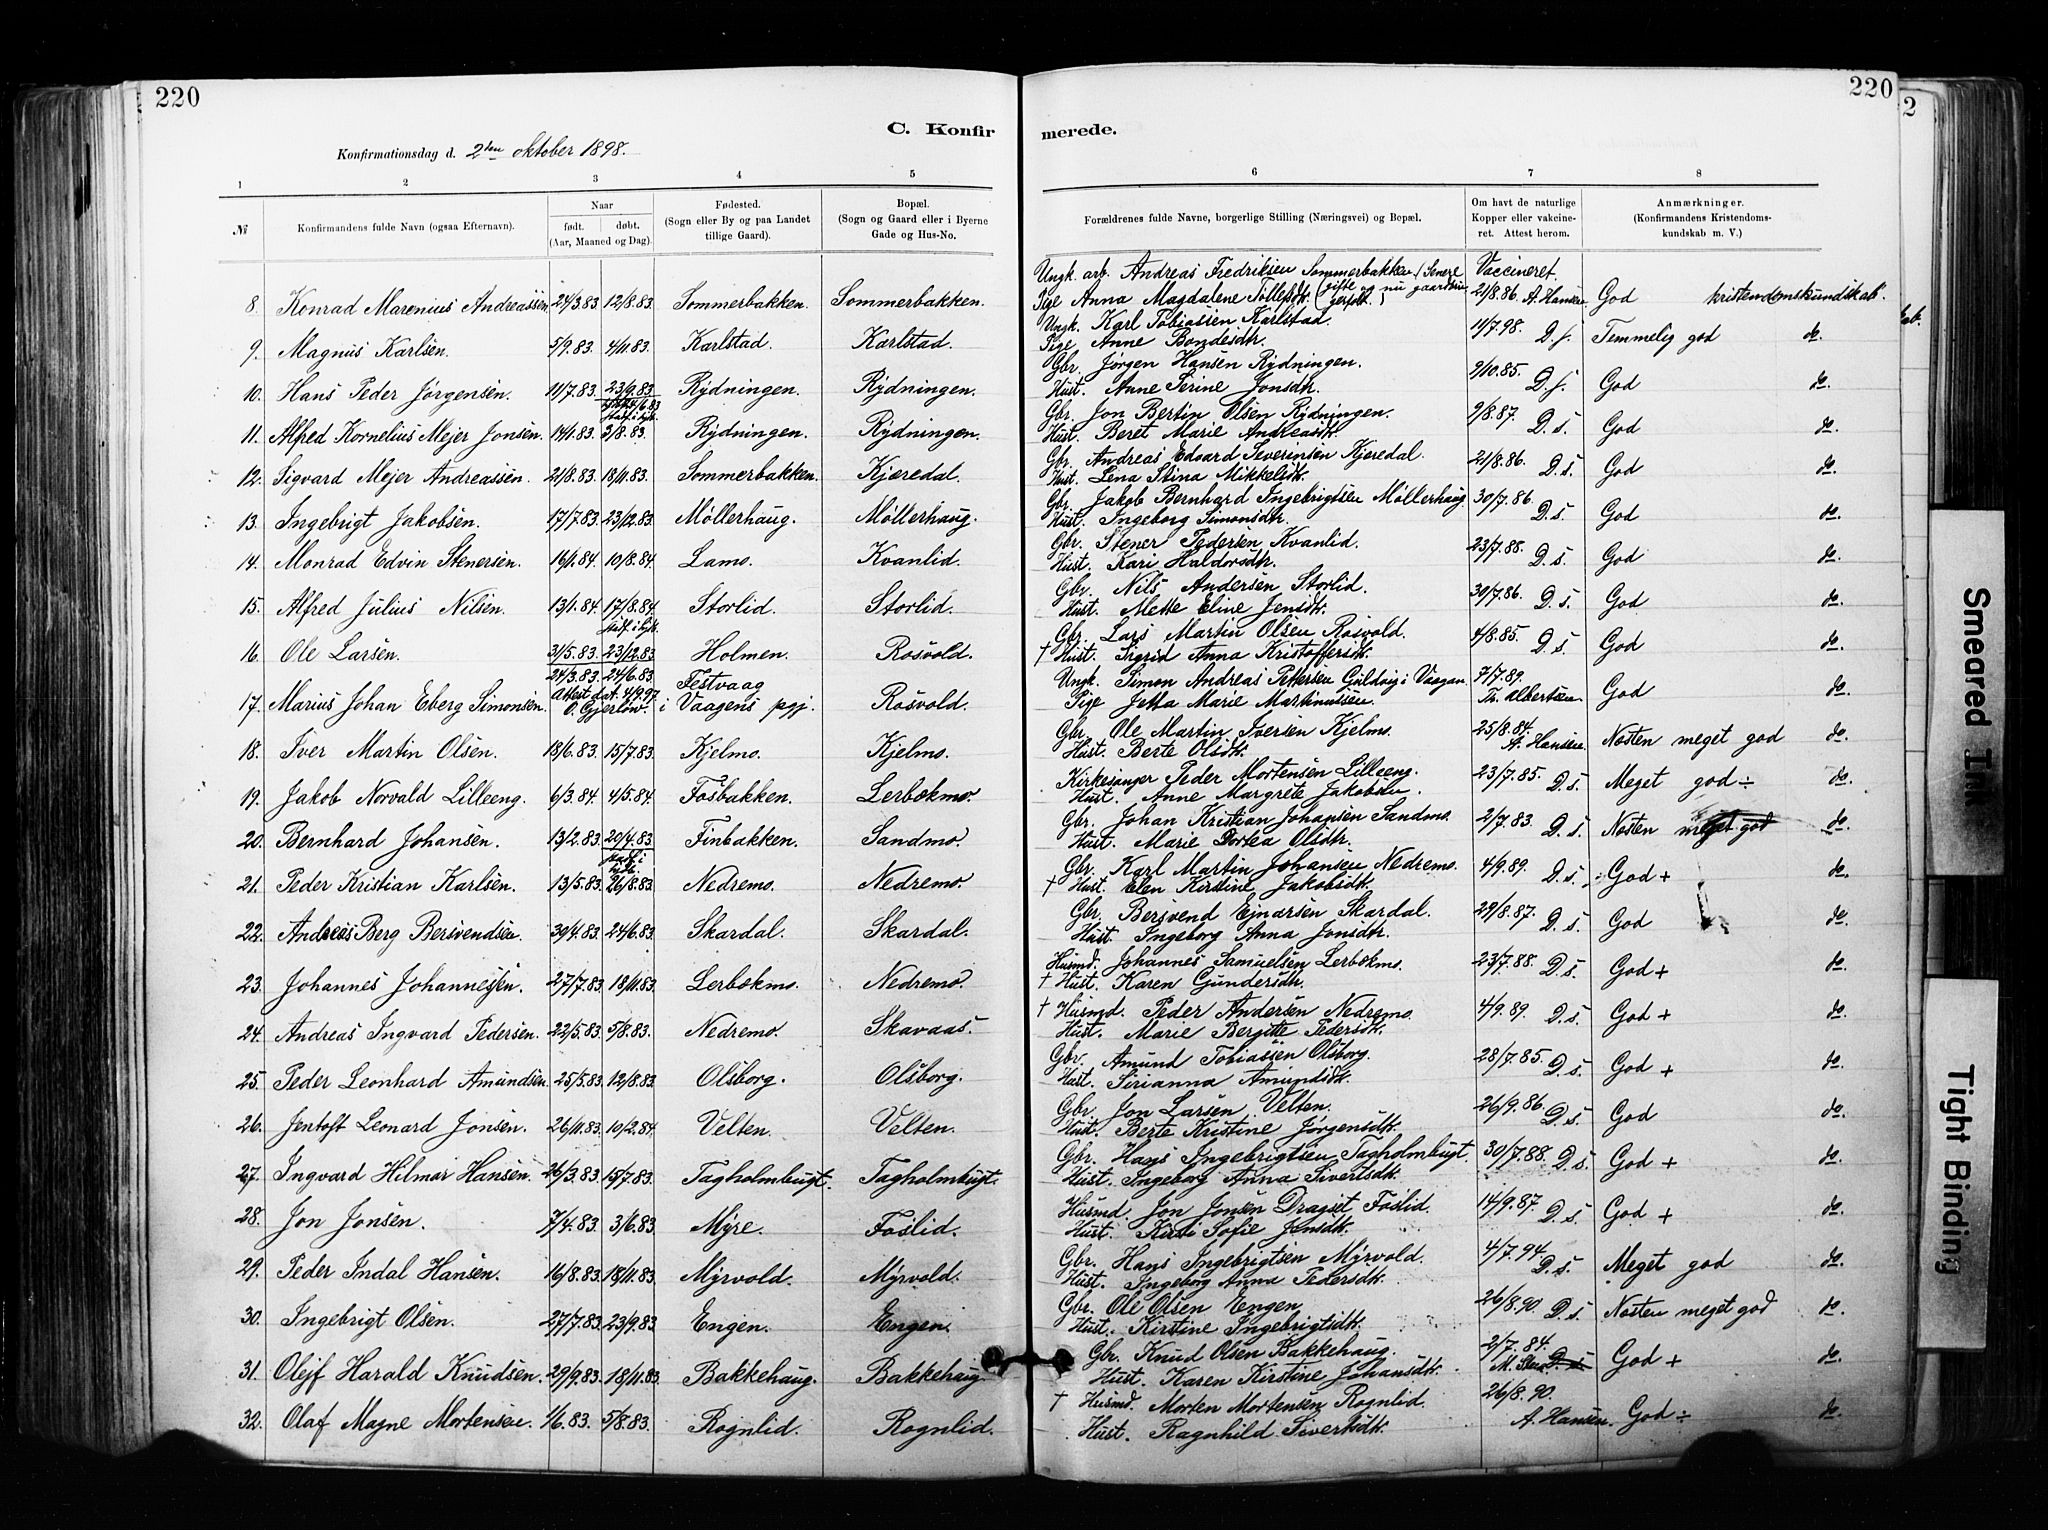 220
220
2
C. Konfir
merede.
Konfirmationsdag d. 2den oktober 1898.
1 2 3 4 5 6 7 8
№ Konfirmandens fulde Navn (ogsaa Efternavn). Naar født. døbt. (Aar, Maaned og Dag). Fødested. (Sogn eller By og paa Landet tillige Gaard). Bopæl. (Sogn og Gaard eller i Byerne Gade og Hus-No. Forældrenes fulde Navne, borgerlige Stilling (Næringsvei) og Bopæl. Om havt de naturlige Kopper eller vakcineret. Attest herom. Anmærkninger. (Konfirmandens Kristendomskundskab m. V.)
Ungk. arb. Andreas Fredriksen Sommerbakken (Senere Vaccineret
8. Konrad Marenius Andreassen 24/3.83 12/8.83. Sommerbakken. Sommerbakken. Pige Anna Magdalene Tollefsdt. gifte og nu gaardbru 21/8.86. A. Hansen God kristendomskundskab.
Ungk. Karl Tobiassen Karlstad.
9. Magnus Karlsen. 5/9.83. 4/11.83. Karlstad. Karlstad. Pige Anne Bondesdtr. 11/7.98. D.s. Temmelig god do.
Gbr. Jørgen Hansen Rydningen.
10. Hans Peder Jørgensen. 11/7.83. 23/9.83 Rydningen. Rydningen. Hust. Anne Serine Jonsdtr. 2/10.85. D.s. God do.
Gbr. Jon Bertin Olsen Rydningen.
11. Alfred Kornelius Mejer Jonsen. 14/1.83. 5/8.83. Rydningen. Rydningen. Hust. Beret Marie Andreasdt. 9/8.87. D.s. God do.
Gbr. Andreas Edvard Severinsen Kjæredal.
12. Sigvard Mejer Andreassen. 21/8.83. 18/11.83. Sommerbakken. Kjæredal. Hust. Lena Stina Mikkelsdt. 21/8.86. D.s. God do.
Gbr. Jakob Bernhard Ingebrigtsen Møllerhaug
13. Ingebrigt Jakobsen. 17/7.83. 23/12.83. Møllerhaug. Møllerhaug. Hust. Ingeborg Simonsdtr. 30/7.86. D.s. God do.
Gbr. Stener Pedersen Kvanlid.
14. Monrad Edvin Stenersen. 16/1.84. 10/8.84. Lamo. Kvanlid. Hust. Kari Haldorsdtr. 23/7.88. D.s. God do.
Gbr. Nils Andersen Storlid.
15. Alfred Julius Nilsen. 13/1.84. 17/8.84. Storlid. Storlid. Hust. Mette Eline Jensdtr. 30/7.86. D.s. God do.
Gbr. Lars Martin Olsen Rosvold.
16. Ole Larsen. 31/5.83. 23/12.83 Holmen. Rosvold. † Hust. Sigrid Anna Kristoffersdt. 4/8.85. D.s. God do.
24/3.83. 24/6.83. Festvaag Ungk. Simon Andreas Pettersen Guldvig i Vaagan. 7/7.89.
17. Marius Johan Eberg Simonsen. Attest dat. 4/9.97. O. Gjerløw. i Vaagens pgj. Rosvold. Pige Jetta Marie Martinussen. Th. Albertsen God do.
Gbr. Ole Martin Iversen Kjelmo. 25/8.84.
18. Iver Martin Olsen. 18/6.83. 15/7.83. Kjelmo. Kjelmo. Hust. Berte Olsdt. A. Hansen Næsten meget god do.
Kirkesanger Peder Mortensen Lilleeng.
19. Jakob Norvald Lilleeng. 6/3.84. 4/5.84. Fosbakken. Lerbækmo. Hust. Anne Margrete Jakobsen. 23/7.85. D.s. Meget god ÷ do.
Gbr. Johan Kristian Johansen Sandmo.
20. Bernhard Johansen. 13/2.83. 20/4.83. Finbakken. Sandmo. Hust. Marie Dortea Olsdtr. 2/7.83. D.s. Næsten meget god do.
Gbr. Karl Martin Johansen Nedremo.
21. Peder Kristian Karlsen. 13/5.83. 26/8.83. Nedremo. Nedremo. † Hust. Elen Kirstine Jakobsdt. 4/9.89. D.s. God + do.
Gbr. Bersvend Ejnarsen Skardal.
22. Andreas Berg Bersvendsen. 30/4.83. 24/6.83. Skardal. Skardal. Hust. Ingeborg Anna Jonsdtr. 29/8.87. D.s. God do.
Husmd. Johannes Samuelsen Lerbækmo.
23. Johannes Johannessen. 27/7.83. 18/11.83. Lerbækmo. Nedremo. † Hust. Karen Gundersdt. 23/7.88. D.s. God + do.
† Husmd. Peder Andersen Nedremo.
24. Andreas Ingvard Pedersen. 22/5.83. 5/8.83. Nedremo. Skavaas. Hust. Marie Bergitte Pedersdt. 4/9.89. D.s. God + do.
Gbr. Amund Tobiassen Olsborg.
25. Peder Leonhard Amundsen. 25/5.83. 12/8.83. Olsborg. Olsborg. Hust. Sirianna Amundsdt. 28/7.85. D.s. God + do.
Gbr. Jon Larsen Velten.
26. Jentoft Leonard Jonsen. 26/11.83. 10/2.84. Velten. Velten. Hust. Berte Kristine Jørgensdt. 26/9.86. D.s. God do.
Gbr. Hans Ingebrigtsen Tagholmbugt.
27. Ingvard Hilmar Hansen. 26/3.83. 15/7.83. Tagholmbugt. Tagholmbugt. Hust. Ingeborg Anna Sivertsdt. 30/7.88. D.s. God + do.
Husmd. Jon Jonsen Dragset Foslid.
28. Jon Jonsen. 7/4.83. 3/6.83. Myre. Foslid. Hust. Kirsti Sofie Jensdt. 14/9.87. D.s. God + do.
Gbr. Hans Ingebrigtsen Myrvold.
29. Peder Indal Hansen. 16/8.83. 18/11.83. Myrvold. Myrvold. Hust. Ingeborg Anna Pedersdt. 4/7.94. D.s. Meget god do.
Gbr. Ole Olsen Engen
30. Ingebrigt Olsen. 27/7.83. 23/9.83. Engen. Engen. Hust. Kirstine Ingebrigtsdt. 26/8.90. D.s. Næsten meget god do.
Gbr. Knud Olsen Bakkehaug. 2/7.84.
31. Olejf Harald Knudsen. 29/9.83. 18/11.83. Bakkehaug. Bakkehaug Hust. Karen Kirstine Johansdt. God + do.
† Husmd. Morten Mortensen Rognlid. 26/8.90.
32. Olaf Magne Mortensen. 1/6.83. 5/8.83. Rognlid. Rognlid. Hust. Ragnhild Sivertsdt. A. Hansen. God ÷ do.
Smeared Ink
Tight Binding